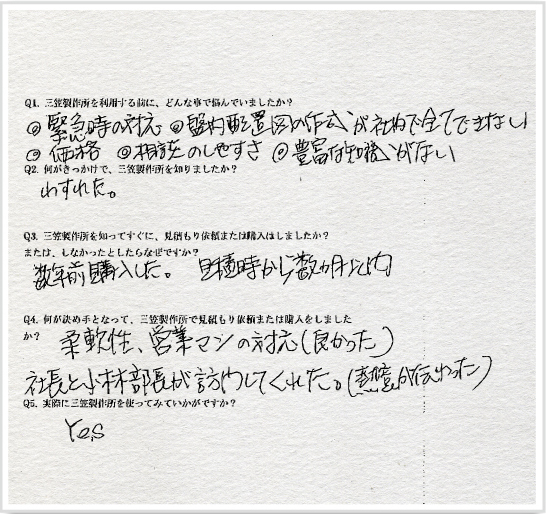 Q1. 三笠製作所を利用する前に、どんな事で悩んでいましたか?
◎緊急時の対応 ◎盤内配置図の作成が社内で全てできない
◎価格 ◎相談のしやすさ ◎豊富な知識がない
Q2. 何がきっかけで、三笠製作所を知りましたか?
わすれた。
Q3. 三笠製作所を知ってすぐに、見積もり依頼または購入はしましたか?
または、しなかったとしたらなぜですか?
数年前購入した。 見積時から数カ月以内
Q4. 何が決め手となって、三笠製作所で見積もり依頼または購入をしました
か? 柔軟性、営業マンの対応(良かった)
社長と小林部長が訪問してくれた。(熱意が伝わった)
Q5. 実際に三笠製作所を使ってみていかがですか?
Yes